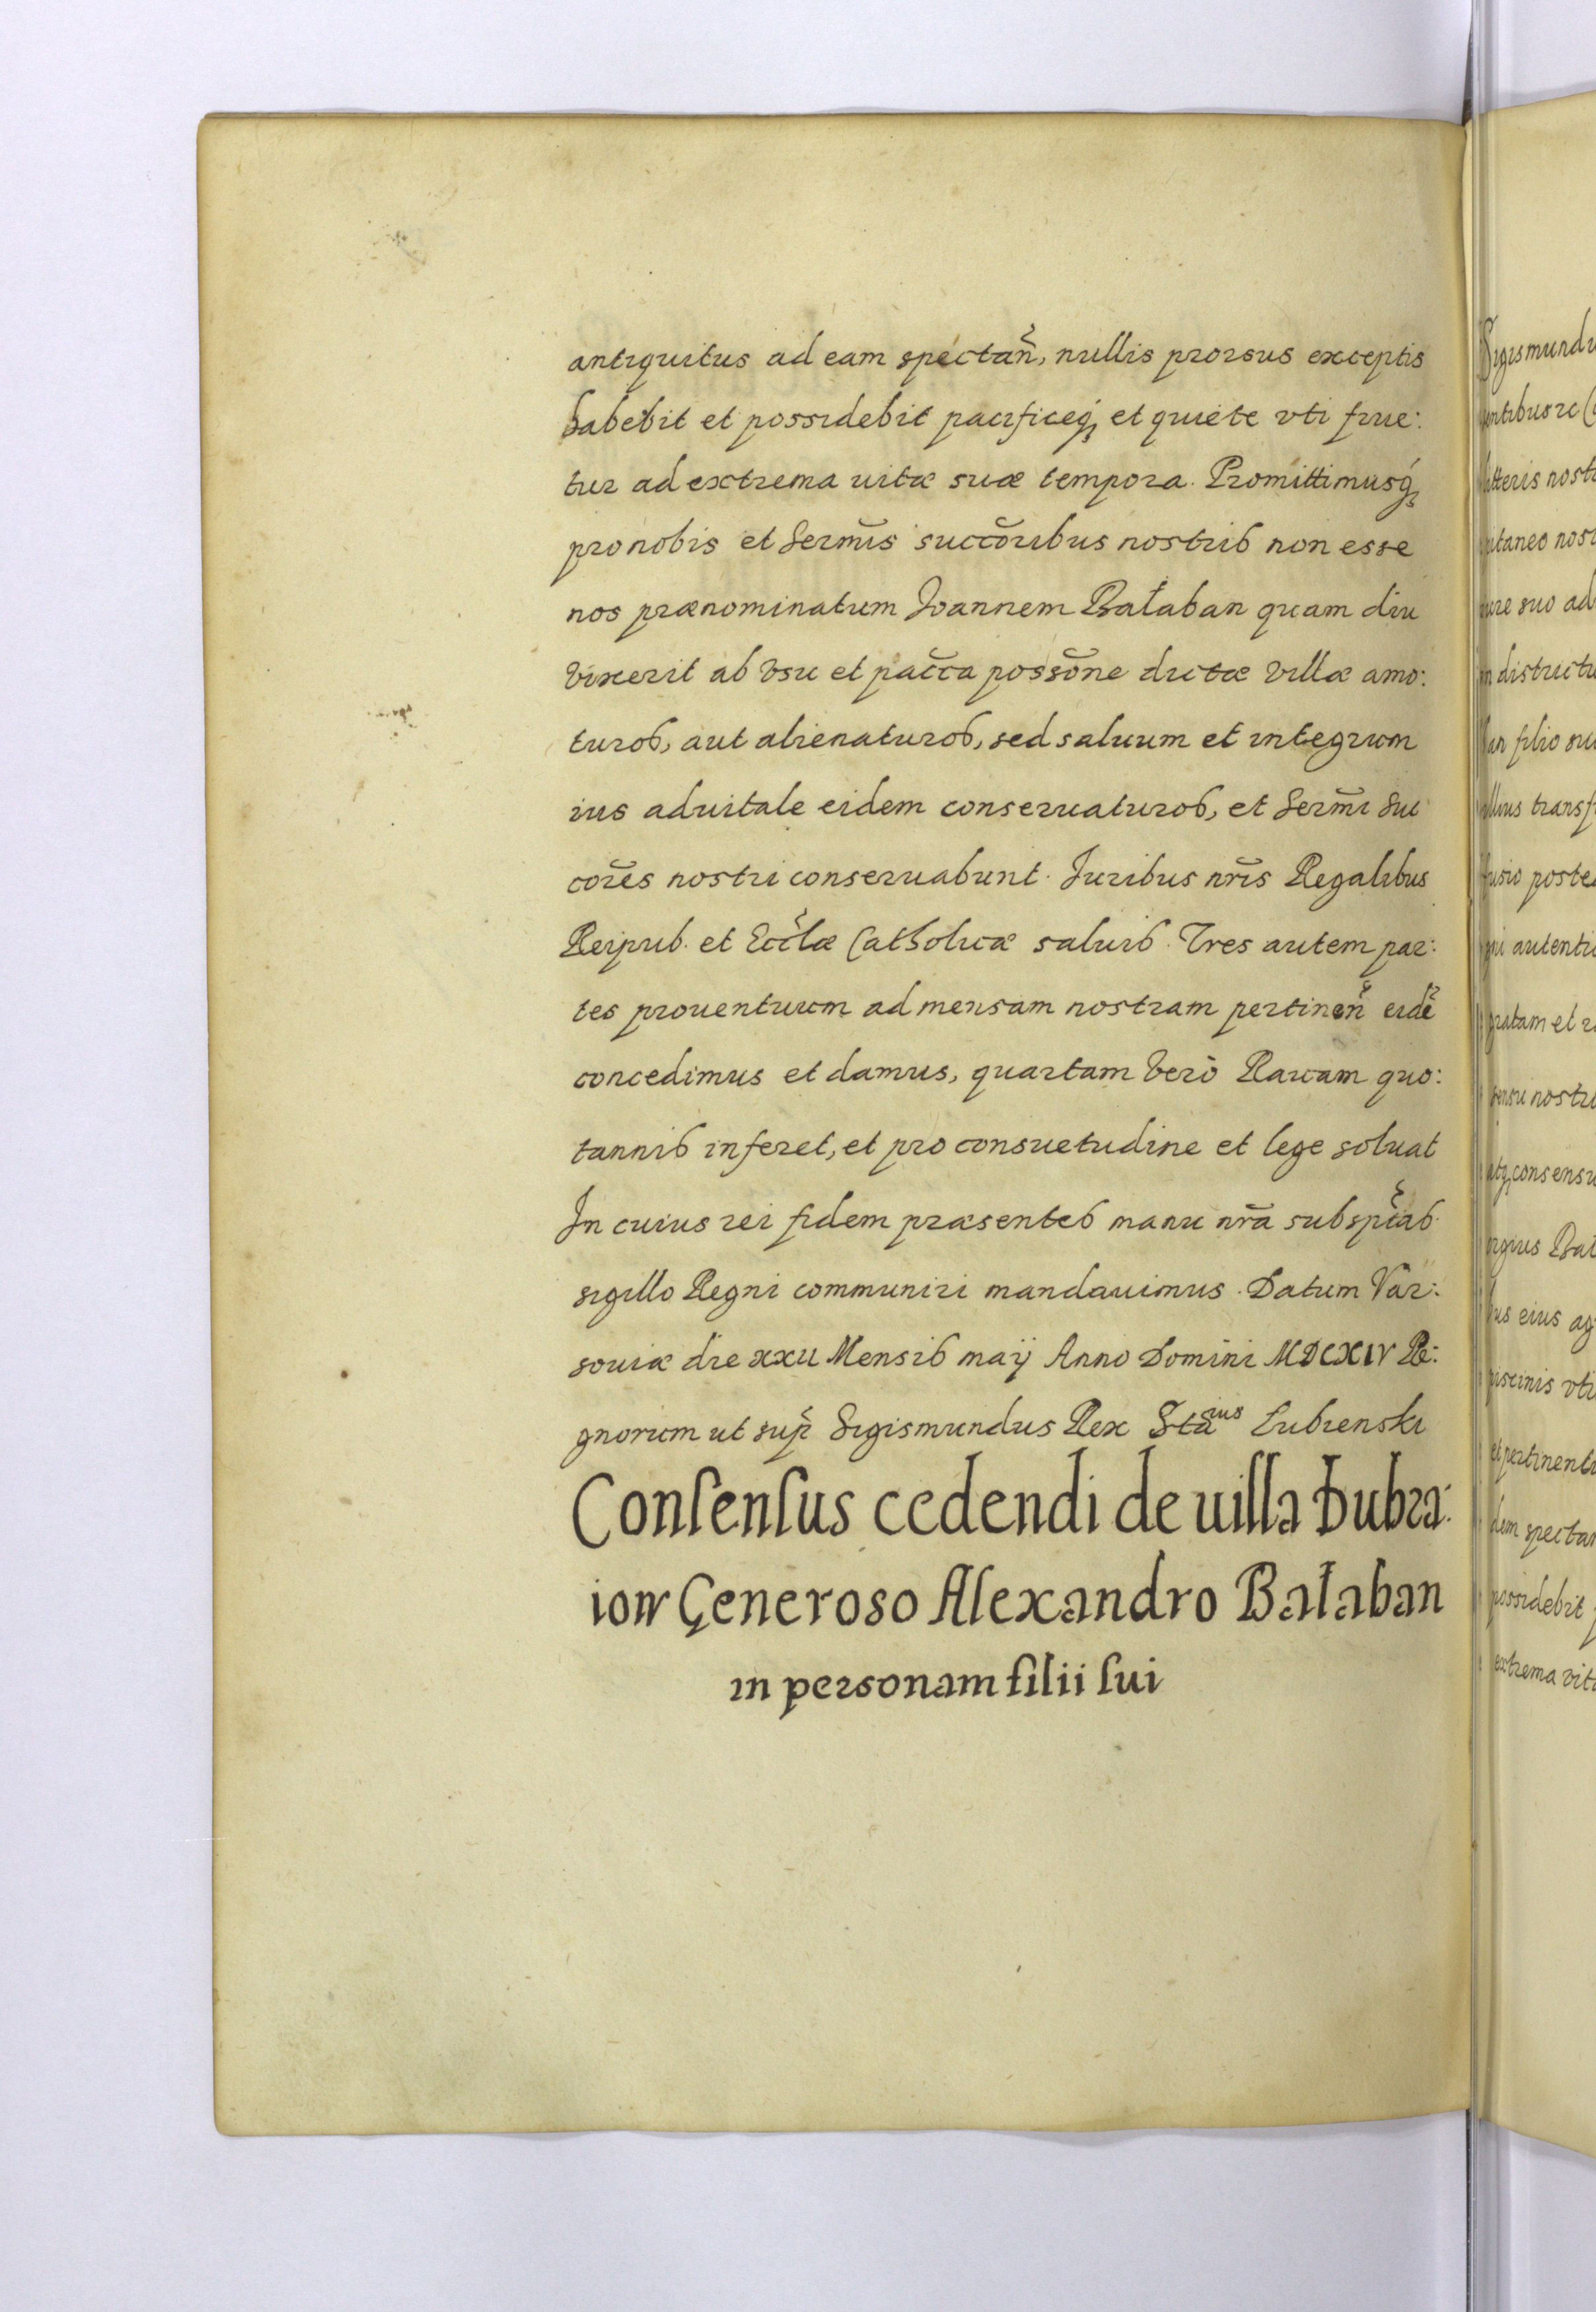 antiquitus ad eam spectañ, nullis prorsus exceptis
habebit et possidebit pacificeq́ꝫ et quiete vti frue:
tur ad extrema uitæ suæ tempora. Promittimusq́ꝫ
pro nobis et Serm̃is succõribus nostris non esse
nos prænominatum Joannem Bałaban quam diu
vixerit ab vsu et pac̃ca possõne dictæ villæ amo:
turos, aut alienaturos, sed saluum et integrum
ius aduitale eidem conseruaturos, et Serm̃i Suc
cor̃es nostri conseruabunt. Juribus nr̃is Regalibus
Reipub. et Eccl̃æ Catholicæ saluis. Tres autem par:
tes prouentuum ad mensam nostram pertineñ eidẽ
concedimus et damus, quartam verò Rauam quo:
tannis inferet, et pro consuetudine et lege soluat
In cuius rei fidem præsentes manu nr̃a subsp̃tas
sigillo Regni communiri mandauimus. Datum Var:
souiæ die xxii Mensis maij Anno Domini MDCXIV Re:
gnorum ut sup̃ Sigismundus Rex Sta<sup>ius</sup> Lubienski
Consensus cedendi de uilla Dubra:
iow Generoso Alexandro Bałaban
in personam filii sui
Sigismundu
litteris nost
districtu
filio su
transf
poste
autenti
et
nostr
consensu
Bal
eius
vti
possidebit
extrema vitæ